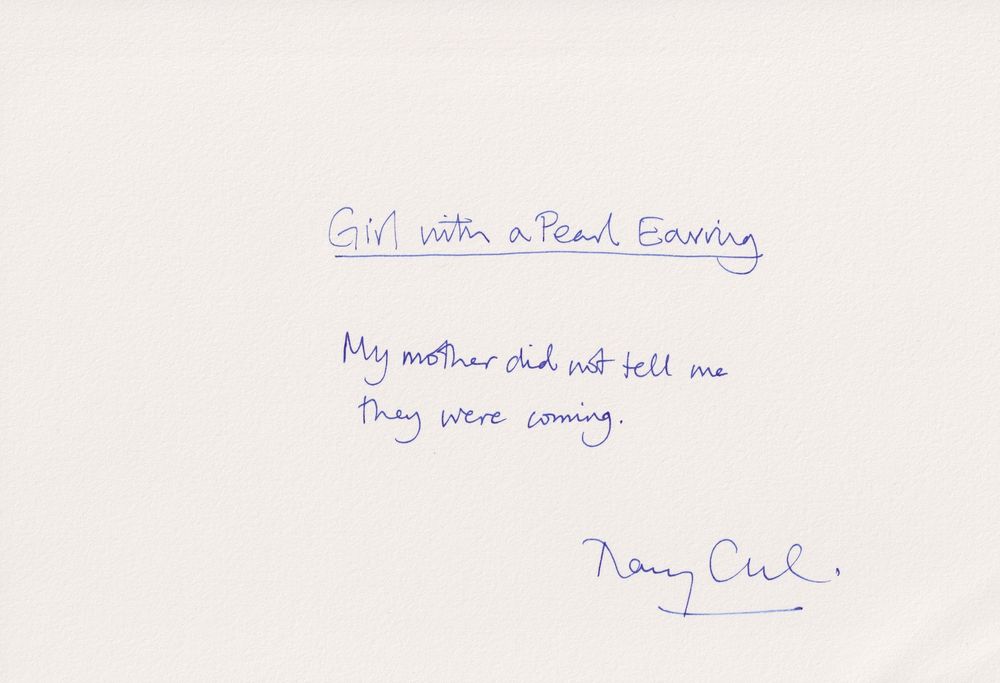 Girl with a Pearl Earring
My mother did not tell me
they were coming.